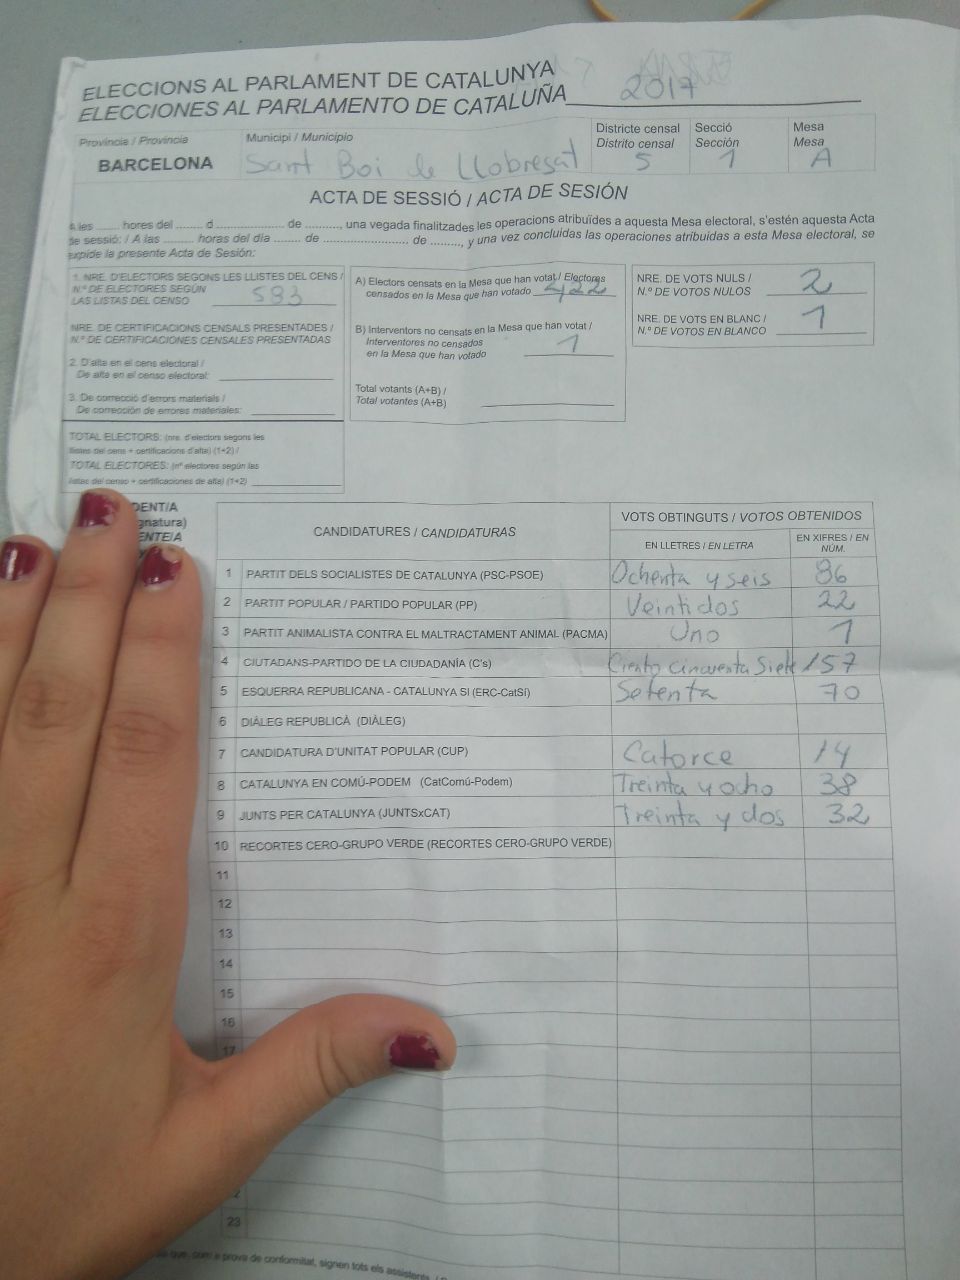 ELECCIONS AL PARLAMENT DE CATALUNYA
ELECCIONES AL PARLAMENTO DE CATALUÑA 2017
Província / Provincia
BARCELONA
Municipi / Municipio
Sant Boi de Llobregat
Districte censal
Distrito censal
5
Secció
Sección
1
Mesa
Mesa
A
ACTA DE SESSIÓ / ACTA DE SESIÓN
A les ........ hores del ........ d ........................ de .........., una vegada finalitzades les operacions atribuïdes a aquesta Mesa electoral, s'estén aquesta Acta
de sessió: / A las ......... horas del día ........ de ........................ de ........., y una vez concluidas las operaciones atribuidas a esta Mesa electoral, se
expide la presente Acta de Sesión:
1. NRE. D'ELECTORS SEGONS LES LLISTES DEL CENS /
N.º DE ELECTORES SEGÚN
LAS LISTAS DEL CENSO 583
NRE. DE CERTIFICACIONS CENSALS PRESENTADES /
N.º DE CERTIFICACIONES CENSALES PRESENTADAS
2. D'alta en el cens electoral /
De alta en el censo electoral:
3. De correcció d'errors materials /
De corrección de errores materiales:
TOTAL ELECTORS: (nre. d'electors segons les
llistes del cens + certificacions d'alta) (1+2) /
TOTAL ELECTORES: (nº electores según las
listas del censo + certificaciones de alta) (1+2)
A) Electors censats en la Mesa que han votat / Electores
censados en la Mesa que han votado 422
B) Interventors no censats en la Mesa que han votat /
Interventores no censados
en la Mesa que han votado 1
Total votants (A+B) /
Total votantes (A+B)
NRE. DE VOTS NULS /
N.º DE VOTOS NULOS 2
NRE. DE VOTS EN BLANC /
N.º DE VOTOS EN BLANCO 1
DENT/A
gnatura)
ENTE/A
CANDIDATURES / CANDIDATURAS
VOTS OBTINGUTS / VOTOS OBTENIDOS
EN LLETRES / EN LETRA
EN XIFRES / EN NÚM.
1 PARTIT DELS SOCIALISTES DE CATALUNYA (PSC-PSOE) Ochenta y seis 86
2 PARTIT POPULAR / PARTIDO POPULAR (PP) Veintidos 22
3 PARTIT ANIMALISTA CONTRA EL MALTRACTAMENT ANIMAL (PACMA) Uno 1
4 CIUTADANS-PARTIDO DE LA CIUDADANÍA (C's) Ciento cincuenta Siete 157
5 ESQUERRA REPUBLICANA - CATALUNYA SI (ERC-CatSí) Setenta 70
6 DIÀLEG REPUBLICÀ (DIÀLEG)
7 CANDIDATURA D'UNITAT POPULAR (CUP) Catorce 14
8 CATALUNYA EN COMÚ-PODEM (CatComú-Podem) Treinta y ocho 38
9 JUNTS PER CATALUNYA (JUNTSxCAT) Treinta y dos 32
10 RECORTES CERO-GRUPO VERDE (RECORTES CERO-GRUPO VERDE)
11
12
13
14
15
16
17
2
23
que, com a prova de conformitat, signen tots els assistents. /